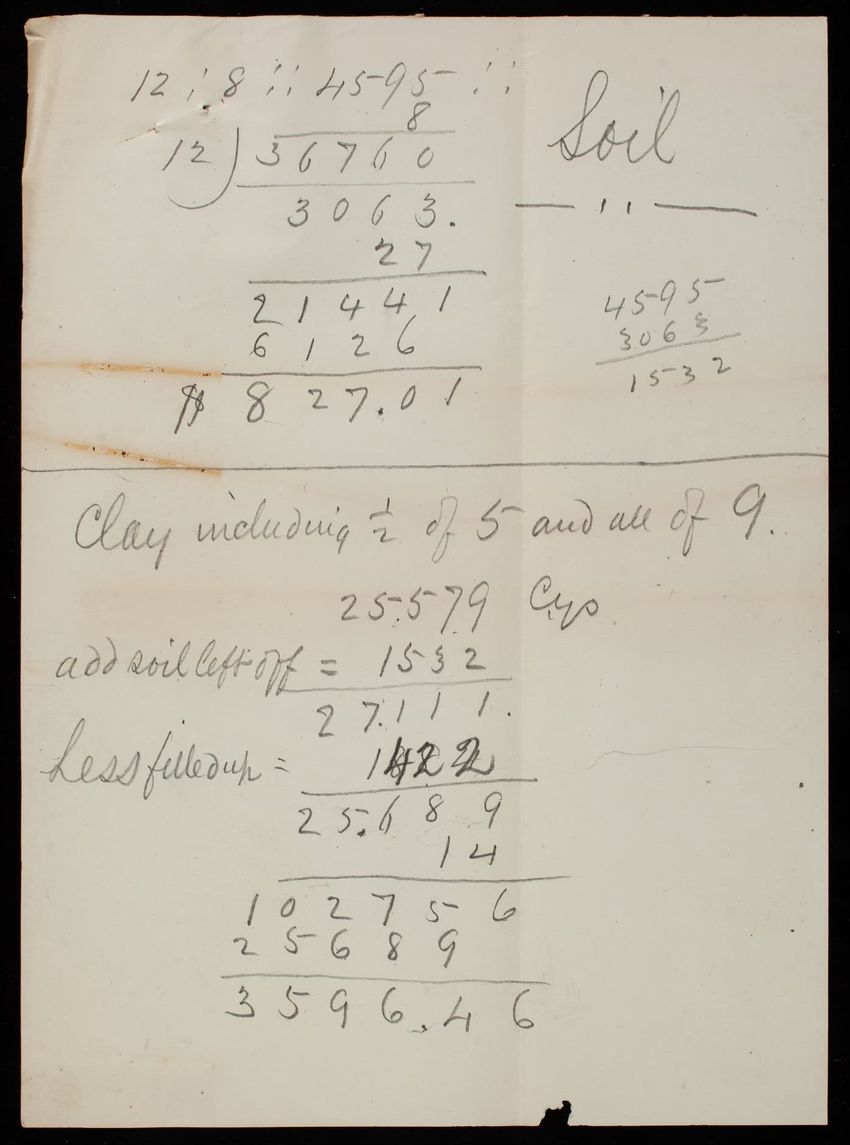 12 : 8 :: 4595 ::
8
12 ) 36760
3063.
27
21441
6126
$ 827.01
Soil
4595
3063
1532
Clay including 1/2 of 5 and all of 9.
25.579 Cys
add soil left off = 1532
27.111.
Less filled up = 1422
25.689
14
102756
25689
3596.46